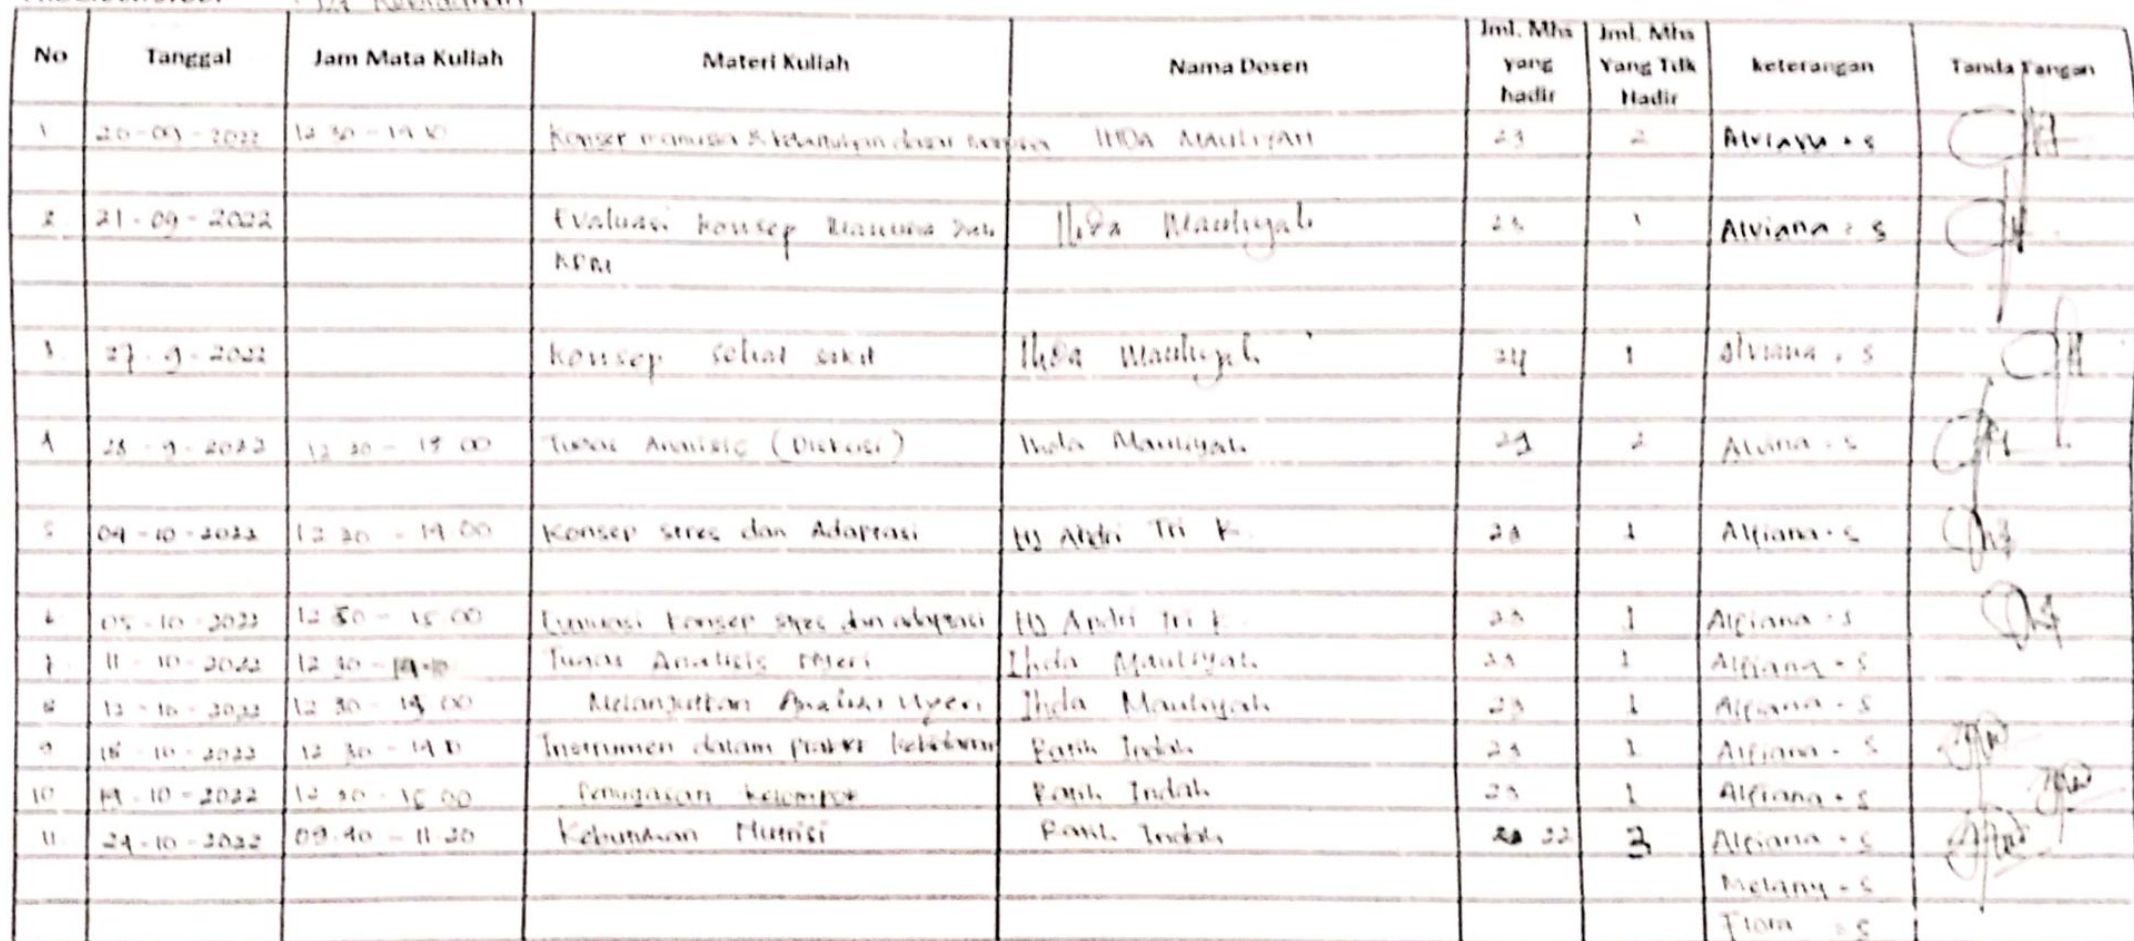 D3 Kebidanan
No Tanggal Jam Mata Kuliah Materi Kuliah Nama Dosen Jml. Mhs yang hadir Jml. Mhs Yang Tdk Hadir keterangan Tanda Tangan
1 20-09-2022 12 30 - 14 10 Konsep manusia & kebutuhan dasar manusia IHDA MAULIYAH 23 2 Alviana . s
2 21-09-2022 Evaluasi konsep manusia dan Ihda Mauliyah 1 Alviana = s
KDM
3. 27-9-2022 Konsep sehat sakit Ihda Mauliyah 24 1 Alviana . s
4 28-9-2022 12 30 - 15 00 Tugas Analisis (Diskusi) Ihda Mauliyah 2 Alviana - s
5 04-10-2022 12 30 - 14.00 Konsep stres dan Adaptasi Hj Andri Tri K. 1 Alfiana - s
6 05-10-2022 12 30 - 15.00 Evaluasi konsep stres dan adaptasi Hj Andri Tri K. 1 Alfiana - s
7 11-10-2022 12 30 - 14.10 Tugas Analisis nyeri Ihda Mauliyah 1 Alfiana - s
8 12-10-2022 12 30 - 00 Melanjutkan Analisis Nyeri Ihda Mauliyah 1 Alfiana - s
9 18-10-2022 12 30 - Instrumen dalam praktek kebidanan Ratih Indah 1 Alfiana - s
10 19-10-2022 12 30 - 15 00 Penugasan kelompok Ratih Indah 1 Alfiana - s
11. 24-10-2022 09.40 - 11.20 Kebutuhan Nutrisi Ratih Indah 22 3 Alfiana - s
Melany - s
Flora = s